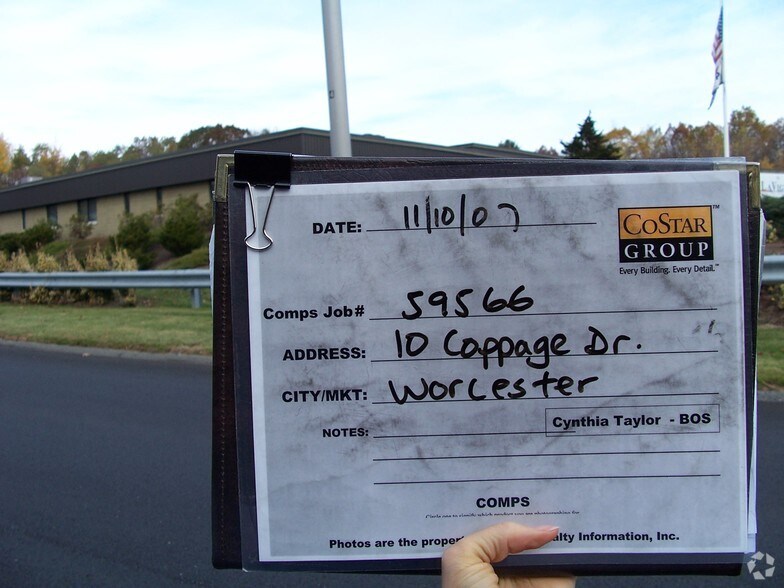 DATE: 11/10/07
COSTAR™
GROUP
Every Building. Every Detail.™
Comps Job# 59566
ADDRESS: 10 Coppage Dr.
CITY/MKT: Worcester
NOTES:
Cynthia Taylor - BOS
COMPS
Photos are the proper alty Information, Inc.